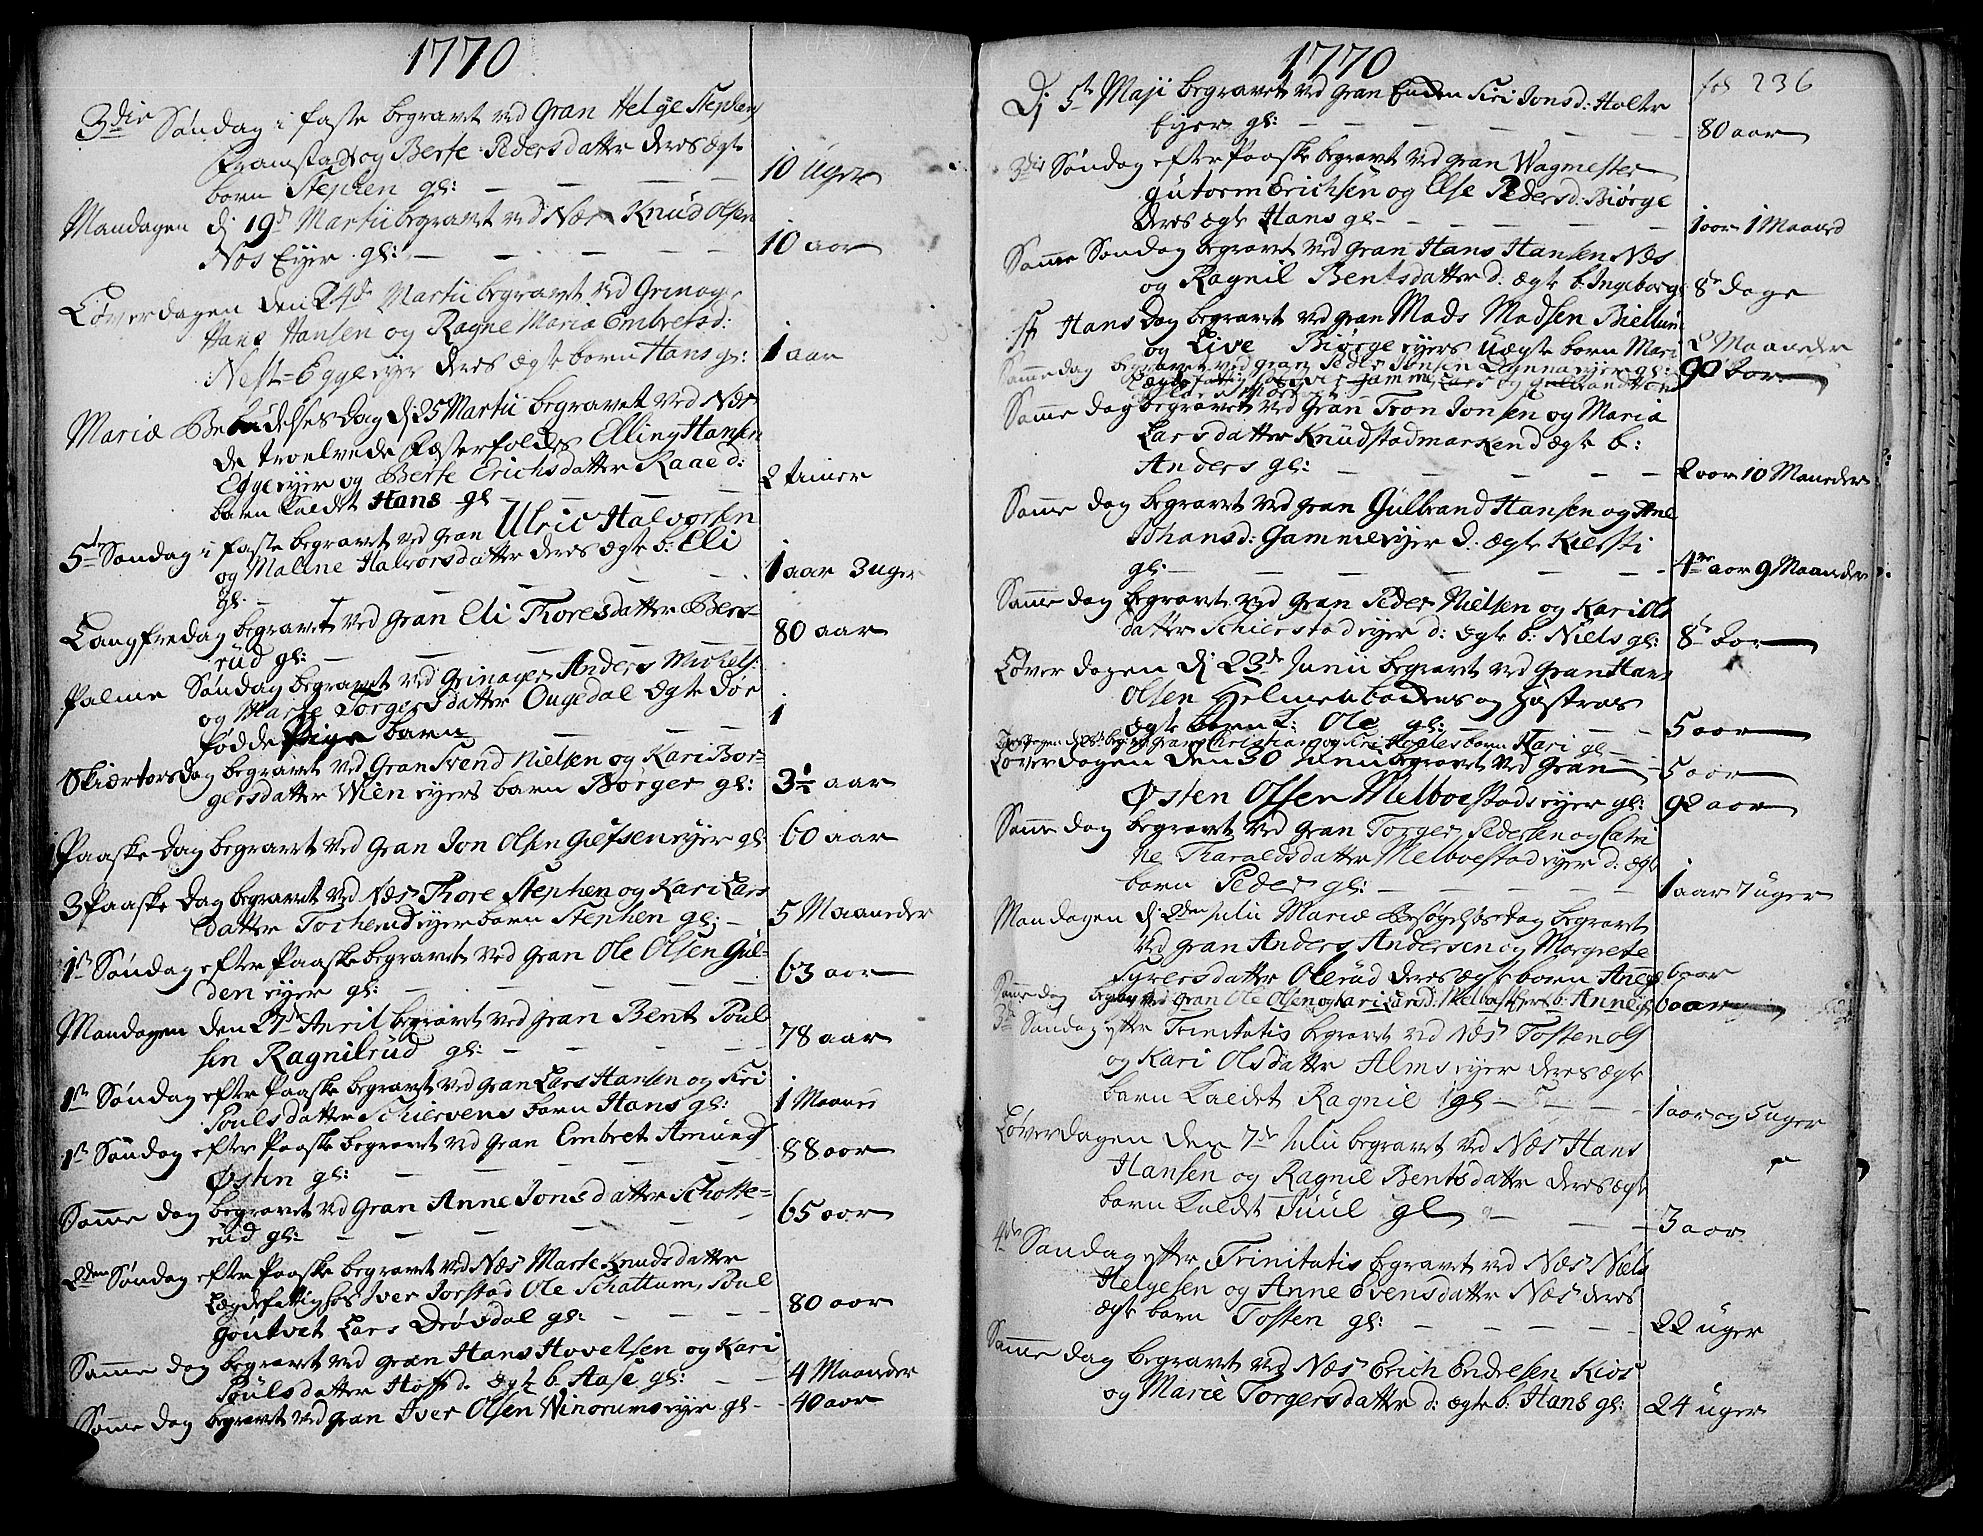 1770
3die Søndag i faste begravet ved Gran Helge Stephen
Framstad og Berte Pedersdatter deres ægte
barn Stephen gl: 10 Uger
Mandagen d 19de Martii begravet ved Næs Knud Olsen
Næs Eyer gl: 10 aar
Løverdagen den 24de Martii begravet ved Grinager
Hans Hansen og Ragne Maria Embretsd:
Nest=Egge eyer deres ægte barn Hans gl: 1 aar
Mariæ Bebudelses Dag d: 25 Martii begravet ved Næs
de troelvede Fæsterfolkes Elling Hansen
Egge eyer og Berte Erichsdatter Raae d:
barn kaldet Hans gl 2 timer
5te Søndag i faste begravet ved Gran Ulric Halvorsen
og Maline Halvorsdatter deres ægte b: Eli
gl: 1 aar 3 uger
Langfredag begravet ved Gran Eli Thoresdatter Bers-
rud gl: 80 aar
Palme Søndag begravet ved Grinager Anders Michels:
og Marte Torgersdatter Ougedal ægte dø
fødde Pige barn 1
Skiærtorsdag begravet ved Gran Svend Nielsen og Kari Bør-
gersdatter Wien eyers barn Børger gl: 3½ aar
1 Paaske Dag begravet ved Gran Jon Olsen Gulsen eyer gl 60 aar
3 Paaske Dag begravet ved Næs Thore Stephen og Kari Lars
datter Tocherud eyer barn Stephen gl: 5 Maaneder
1te Søndag efter Paaske begravet ved Gran Ole Olsen Gul-
den eyer gl: 63 aar
Mandagen den 27de April begravet ved Gran Bent Poul
sen Ragnilrud gl: 78 aar
1te Søndag efter Paaske begravet ved Gran Lars Hansen og Siri
Poulsdatter Schiervens barn Hans gl: 1 Maaned
1te Søndag efter Paaske begravet ved Gran Embret Amund
Østen gl: 88 aar
Samme dag begravet ved Gran Anne Jonsdatter Schotte=
rud gl: 65 aar
2den Søndag efter Paaske begravet ved Næs Marte Knudsdatter
Lægdefattig hos Iver Jorstad Ole Schattum, Poul
Goutvet Lars Drøvdal gl: 80 aar
Samme dag begravet ved Gran Hans Hovelsen og Kari
Poulsdatter Hoff d. ægte b. Aase gl: 4 Maaneder
Samme dag begravet ved Gran Iver Olsen Winorums eyer gl 40 aar
1770
fol 236
Dj 5te Maji begravet ved Gran Enken Siri Jonsd: Holte
Eyer gl: 80 aar
3die Søndag efter Paaske begravet ved Gran Wagmester
Gutorm Erichsen og Else Pedersd: Biørge
deres ægte Hans gl 1 aar 1 Maaned
Samme Søndag begravet ved Gran Hans Hansen Næs
og Ragnil Bentsdatter d. ægte b. Ingeborg 8te dage
St Hans Dag begravet ved Gran Mads Madsen Biellum
og Live Biørge eyers uægte barn Mari 2 Maaneder
Samme dag begravet ved Gran Peder Jonsen Lynna eyer gl: 90 Aar
Samme dag begravet ved Gran Tron Jonsen og Maria
Larsdatter Knudstadmarken d ægte b:
Anders gl: 2 aar 10 Maaneder
Samme dag begravet ved Gran Gulbrand Hansen og Ane
Johansd: Gamme eyer d. ægte Kiersti
gl: 4re aar 9 Maaneder
Samme dag begravet ved Gran Peder Nielsen og Kari Ols
datter Schierstad eyer d: ægte b: Niels gl: 8te Aar
Løverdagen dj 23de Junii begravet ved Gran Hans
Olsen Helmen og Hustroes
ægte barn Ole gl: 5 aar
Christian og Siri barn Kari gl 5 aar
Løverdagen den 30 Junii begravet ved Gran
Østen Olsen Melboestads eyer gl: 92 aar
Samme dag begravet ved Gran Torger Pedersen og Catri
ne Tharaldsdatter Melboestad eyer d: ægte
barn Peder gl: 1 aar 7 uger
Mandagen d: 2den Julii Mariæ Besøgelses dag begravet
ved Gran Anders Andersen og Margrete
Syversdatter Olerud deres ægte barn Anne gl 6 aar
Samme dag begrav ved Gran Ole Olsen og Kari Larsd: b: Anne gl 6 aar
3de Søndag efter Trinitatis begravet ved Næs Tosten Ols
og Kari Olsdatter Alms eyer deres ægte
barn kaldet Ragnil gl 1 aar og 5 uger
Løverdagen den 7de Julii begravet ved Næs Hans
Hansen og Ragnil Bentsdatter deres ægte
barn kaldet Juul gl 3 aar
4de Søndag efter Trinitatis begravet ved Næs Niels
Helgesen og Anne Evensdatter Næs deres
ægte barn Tosten gl: 22 uger
Samme dag begravet ved Næs Erich Endresen Kios
og Marie Torgersdatter d: ægte b: Hans gl: 24 uger